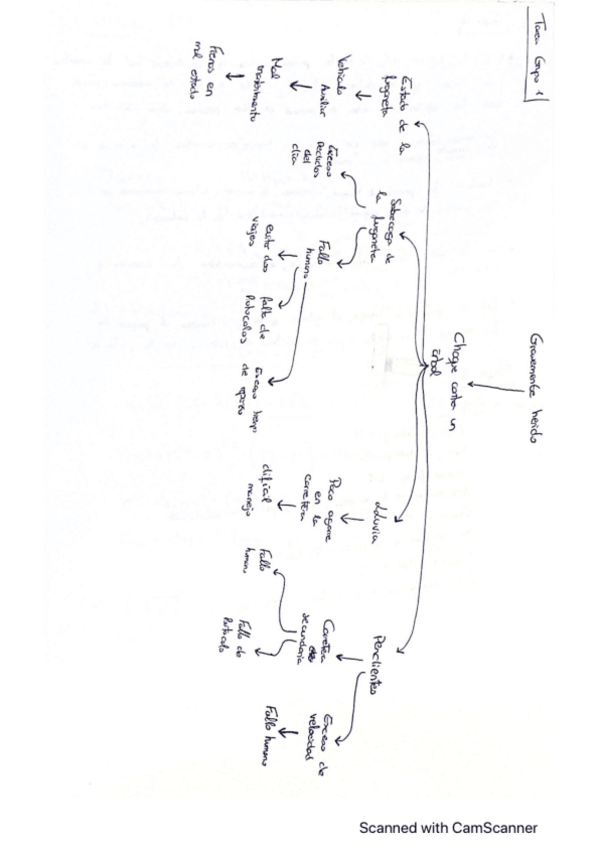 Tarea Grupo 1
Gravemente herido
Choque contra un
árbol
Estado de la
furgoneta
Vehículo
Auxiliar
Mal
mantenimiento
Frenos en
mal estado
Sobrecarga de
la furgoneta
Exceso
Pedidos
del
día
Fallo
humano
evitar dos
viajes
falta de
Protocolos
Exceso tiempo
de
lluvia
Poco agarre
en la
carretera
difícil
manejo
Pendientes
Carretera
secundaria
Fallo
humano
Fallo de
Protocolo
Exceso de
velocidad
Fallo humano
Scanned with CamScanner